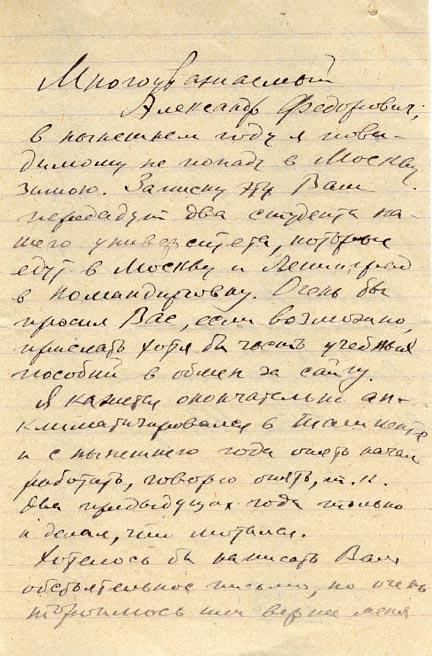 Многоуважаемый
Александр Федорович,
в нынешнем году я пови-
димому не попаду в Москву
зимою. Записку эту Вам
передадут два студента на-
шего университета, которые
едут в Москву и Ленинград
в командировку. Очень бы
просил Вас, если возможно,
прислать хотя бы часть учебных
пособий в обмен за сайгу.
Я кажется окончательно ак-
климатизировался в Ташкенте
и с нынешнего года опять начал
работать, говорю опять, т.к.
два предыдущих года только
и делал, что мотался.
Хотелось бы написать Вам
обстоятельное письмо, но очень
торопилось или вернее меня